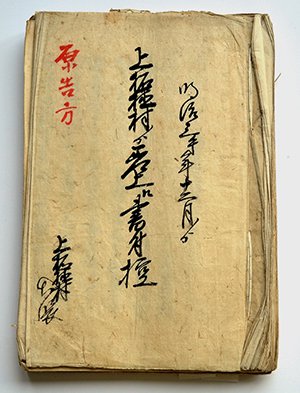 明治三年十二月ゟ
上板橋村ゟ差上候書付控
原告方
上板橋村